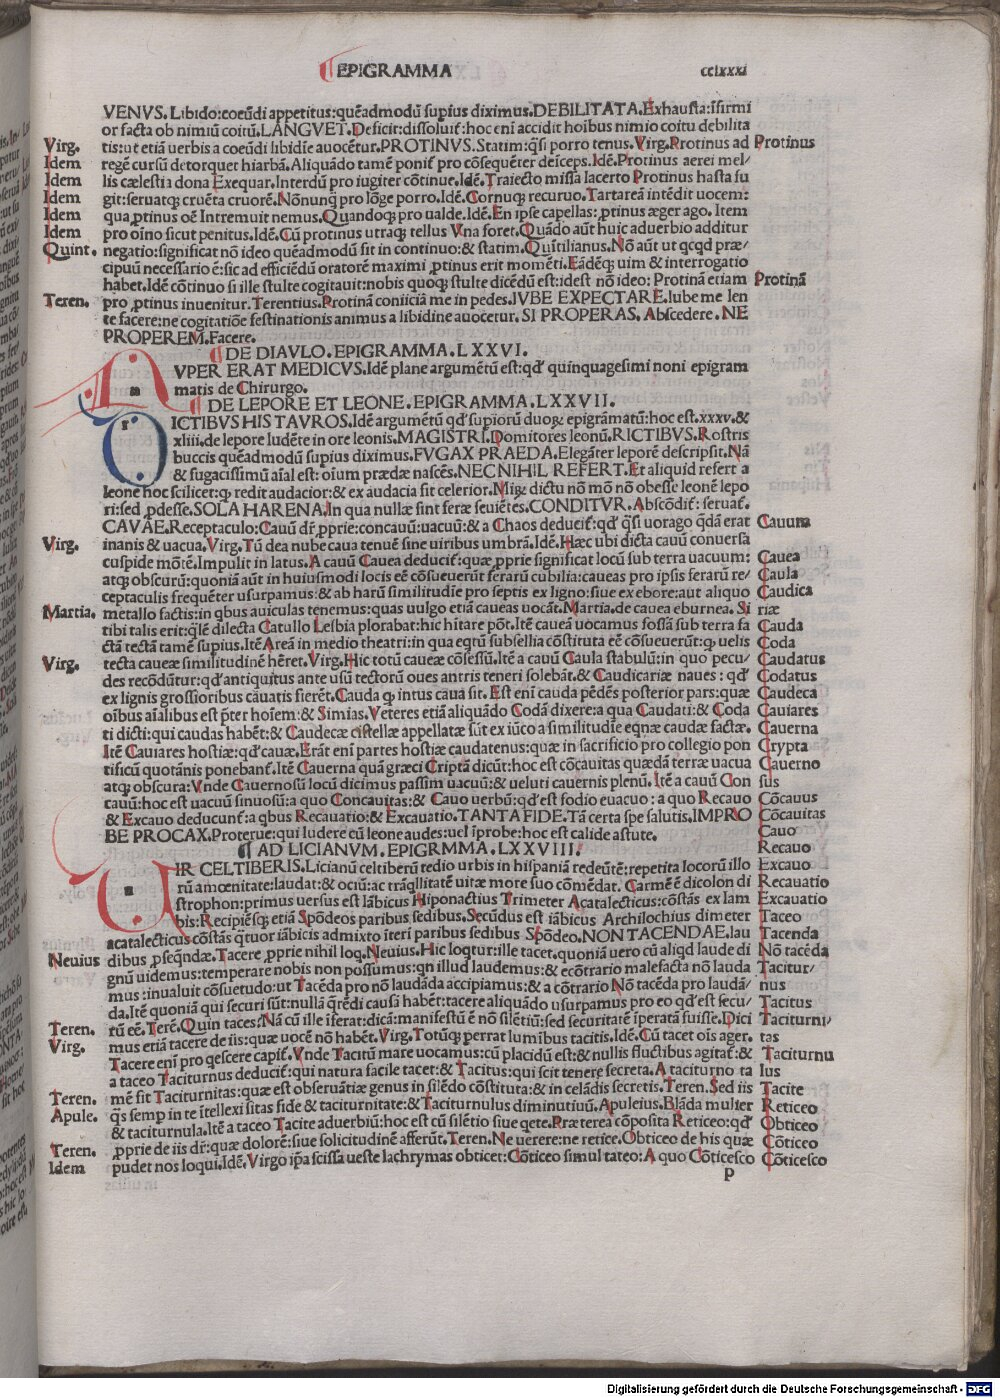 EPIGRAMMA
cclxxxi
VENVS. Libido: coeūdi appetitus: quēadmodū supius diximus. DEBILITATA. Exhausta: ifirmi
or facta ob nimiū coitū. LANGVET. Deficit: dissoluit᷑: hoc eni accidit hoibus nimio coitu debilita
Virg. tis: ut etiā uerbis a coeūdi libidie auocētur. PROTINVS. Statim: q̄si porro tenus. Virg. Protinus ad Protinus
Idem regē cursū detorquet hiarbā. Aliquādo tamē ponit᷑ pro cōsequēter deiceps. Idē. Protinus aerei mel-
Idem lis cælestia dona Exequar. Interdū pro iugiter cōtinue. Idē. Traiecto missa lacerto Protinus hasta fu
Idem git: seruatq; cruēta cruorē. Nōnunq̄ pro lōge porro. Idē. Cornuq; recuruo. Tartareā intēdit uocem:
Idem qua ꝓtinus oē Intremuit nemus. Quandoq; pro ualde. Idē. En ipse capellas: ꝓtinus æger ago. Item
Idem pro oīno sicut penitus. Idē. Cū protinus utraq; tellus Vna foret. Quādo aūt huic aduerbio additur
Quint. negatio: significat nō ideo quēadmodū sit in continuo: & statim. Quītilianus. Nō aūt ut qcqd præ-
cipuū necessario ē: sic ad efficiēdū oratorē maximi ꝓtinus erit momēti. Eādēq; uim & interrogatio
habet. Idē cōtinuo si ille stulte cogitauit: nobis quoq; stulte dicēdū est: idest nō ideo: Protinā etiam Protinā
Teren. pro ꝓtinus inuenitur. Terentius. Protinā coniiciā me in pedes. IVBE EXPECTARE. Iube me len
te facere: ne cogitatiōe festinationis animus a libidine auocetur. SI PROPERAS. Abscedere. NE
PROPEREM. Facere.
DE DIAVLO. EPIGRAMMA. LXXVI.
NVPER ERAT MEDICVS. Idē plane argumētū est: qd' quinquagesimi noni epigram
matis de Chirurgo.
DE LEPORE ET LEONE. EPIGRAMMA. LXXVII.
RICTIBVS HIS TAVROS. Idē argumētū qd' supiorū duoꝝ epigrāmatū: hoc est. xxxv. &
xliii. de lepore ludēte in ore leonis. MAGISTRI. Domitores leonū. RICTIBVS. Rostris
buccis quēadmodū supius diximus. FVGAX PRAEDA. Elegāter leporē descripsit. Nā
& fugacissimū aīal est: oium prædæ nascēs. NEC NIHIL REFERT. Et aliquid refert a
leone hoc scilicet: q redit audacior: & ex audacia fit celerior. Miꝝ dictu nō mō nō obesse leonē lepo
ri: sed ꝓdesse. SOLA HARENA. In qua nullæ sint feræ seuiētes. CONDITVR. Abscōdit᷑: seruat᷑.
CAVAE. Receptaculo: Cauū dr̄ ꝓprie: concauū: uacuū: & a Chaos deducit᷑: qd' q̄si uorago q̄dā erat Cauum
Virg. inanis & uacua. Virg. Tū dea nube caua tenuē sine uiribus umbrā. Idē. Hæc ubi dicta cauū conuersa
cuspide mōtē. Impulit in latus. A cauū Cauea deducit᷑: quæ ꝓprie significat locū sub terra uacuum: Cauea
atq; obscurū: quoniā aūt in huiusmodi locis eē cōsueuerūt ferarū cubilia: caueas pro ipsis ferarū re/ Caula
ceptaculis frequēter usurpamus: & ab harū similitudīe pro septis ex ligno: siue ex ebore: aut aliquo Caudica
Martia. metallo factis: in qbus auiculas tenemus: quas uulgo etiā caueas uocāt. Martia. de cauea eburnea. Si riæ
tibi talis erit: q̄lē dilecta Catullo Lesbia plorabat: hic hītare pōt. Itē caueā uocamus fossā sub terra fa Cauda
ctā tectā tamē supius. Itē Areā in medio theatri: in qua eqtū subsellia cōstituta eē cōsueuerūt: q uelis Coda
Virg. tecta caueæ similitudinē hēret. Virg. Hic totū caueæ cōsessū. Itē a cauū Caula stabulū: in quo pecu/ Caudatus
des recōdūtur: qd' antiquitus ante usū tectorū oues antris teneri solebāt. & Caudicariæ naues: qd' Codatus
ex lignis grossioribus cāuatis fierēt. Cauda q intus caua sit. Est eni cauda pēdēs posterior pars: quæ Caudeca
oībus aīalibus est p̄ter hoīem: & Simias. Veteres etiā aliquādo Codā dixere: a qua Caudati: & Coda Cauiares
ti dicti: qui caudas habēt: & Caudecæ cistellæ appellatæ sūt ex iūco a similitudīe eqnæ caudæ factæ. Cauerna
Itē Cauiares hostiæ: qd' cauæ. Erāt eni partes hostiæ caudatenus: quæ in sacrificio pro collegio pon Crypta
tificū quotānis ponebant᷑. Itē Cauerna quā græci Criptā dicūt: hoc est cōcauitas quædā terræ uacua Cauerno
atq; obscura: Vnde Cauernosū locū dicimus passim uacuū: & ueluti cauernis plenū. Itē a cauū Con sus
cauū: hoc est uacuū sinuosū: a quo Concauitas: & Cauo uerbū: qd' est fodio euacuo: a quo Recauo Cōcauus
& Excauo deducunt᷑: a qbus Recauatio: & Excauatio. TANTA FIDE. Tā certa spe salutis. IMPRO Cōcauitas
BE PROCAX. Proterue: qui ludere cū leone audes: uel īprobe: hoc est calide astute. Cauo
AD LICIANVM. EPIGRMMA. LXXVIII. Recauo
VIR CELTIBERIS. Licianū celtiberū tedio urbis in hispaniā redeūtē: repetita locorū illo Excauo
rū amœnitate: laudat: & ociū: ac trāqllitatē uitæ more suo cōmēdat. Carmē ē dicolon di Recauatio
strophon: primus uersus est Iābicus Hiponactius Trimeter Acatalecticus: cōstās ex Iam Excauatio
bis: Recipiēsq; etiā Spōdeos paribus sedibus. Secūdus est iābicus Archilochius dimeter Taceo
acatalecticus cōstās q̄tuor iābicis admixto iteri paribus sedibus Spōdeo. NON TACENDAE. lau Tacenda
Neuius dibus ꝓseq̄ndæ. Tacere ꝓprie nihil loq. Neuius. Hic loqtur: ille tacet. quoniā uero cū aliqd laude di Nō tacēda
gnū uidemus: temperare nobis non possumus: qn illud laudemus: & ecōtrario malefacta nō lauda Tacitur/
mus: inualuit cōsuetudo: ut Tacēda pro nō laudāda accipiamus: & a cōtrario Nō tacēda pro laudā/ nus
da. Itē quoniā qui securi sūt: nullā q̄rēdi causā habēt: tacere aliquādo usurpamus pro eo qd' est secu/ Tacitus
Teren. tū eē. Terē. Quin taces: Nā cū ille īferat: dicā: manifestū ē nō silētiū: sed securitatē īperatā fuisse. Dici Taciturni/
Virg. mus etiā tacere de iis: quæ uocē nō habēt. Virg. Totūq; perrat luminbus tacitis. Idē. Cū tacet oīs ager. tas
Tacere eni pro qescere capit᷑. Vnde Tacitū mare uocamus: cū placidū est: & nullis fluctibus agitat᷑: & Taciturnu
a taceo Taciturnus deducit᷑: qui natura facile tacet: & Tacitus: qui scit tenere secreta. A taciturno ta lus
Teren. mē fit Taciturnitas: quæ est obseruātiæ genus in silēdo cōstituta: & in celādis secretis. Teren. Sed iis Tacite
Apule. q̄s semp in te itellexi sitas side & taciturnitate: & Taciturnulus diminutiuū. Apuleius. Blāda mulier Reticeo
& taciturnula. Itē a taceo Tacite aduerbiū: hoc est cū silētio siue qete. Præterea cōposita Reticeo: qd' Obticeo
Teren. ꝓprie de iis dr̄: quæ dolorē: siue solicitudinē afferūt. Teren. Ne uerere: ne retice. Obticeo de his quæ Cōticeo
Idem pudet nos loqui. Idē. Virgo ip̄a scissa ueste lachrymas obticet: Cōticeo simul tateo: A quo Cōticesco Cōticesco
p
Digitalisierung gefördert durch die Deutsche Forschungsgemeinschaft - DFG